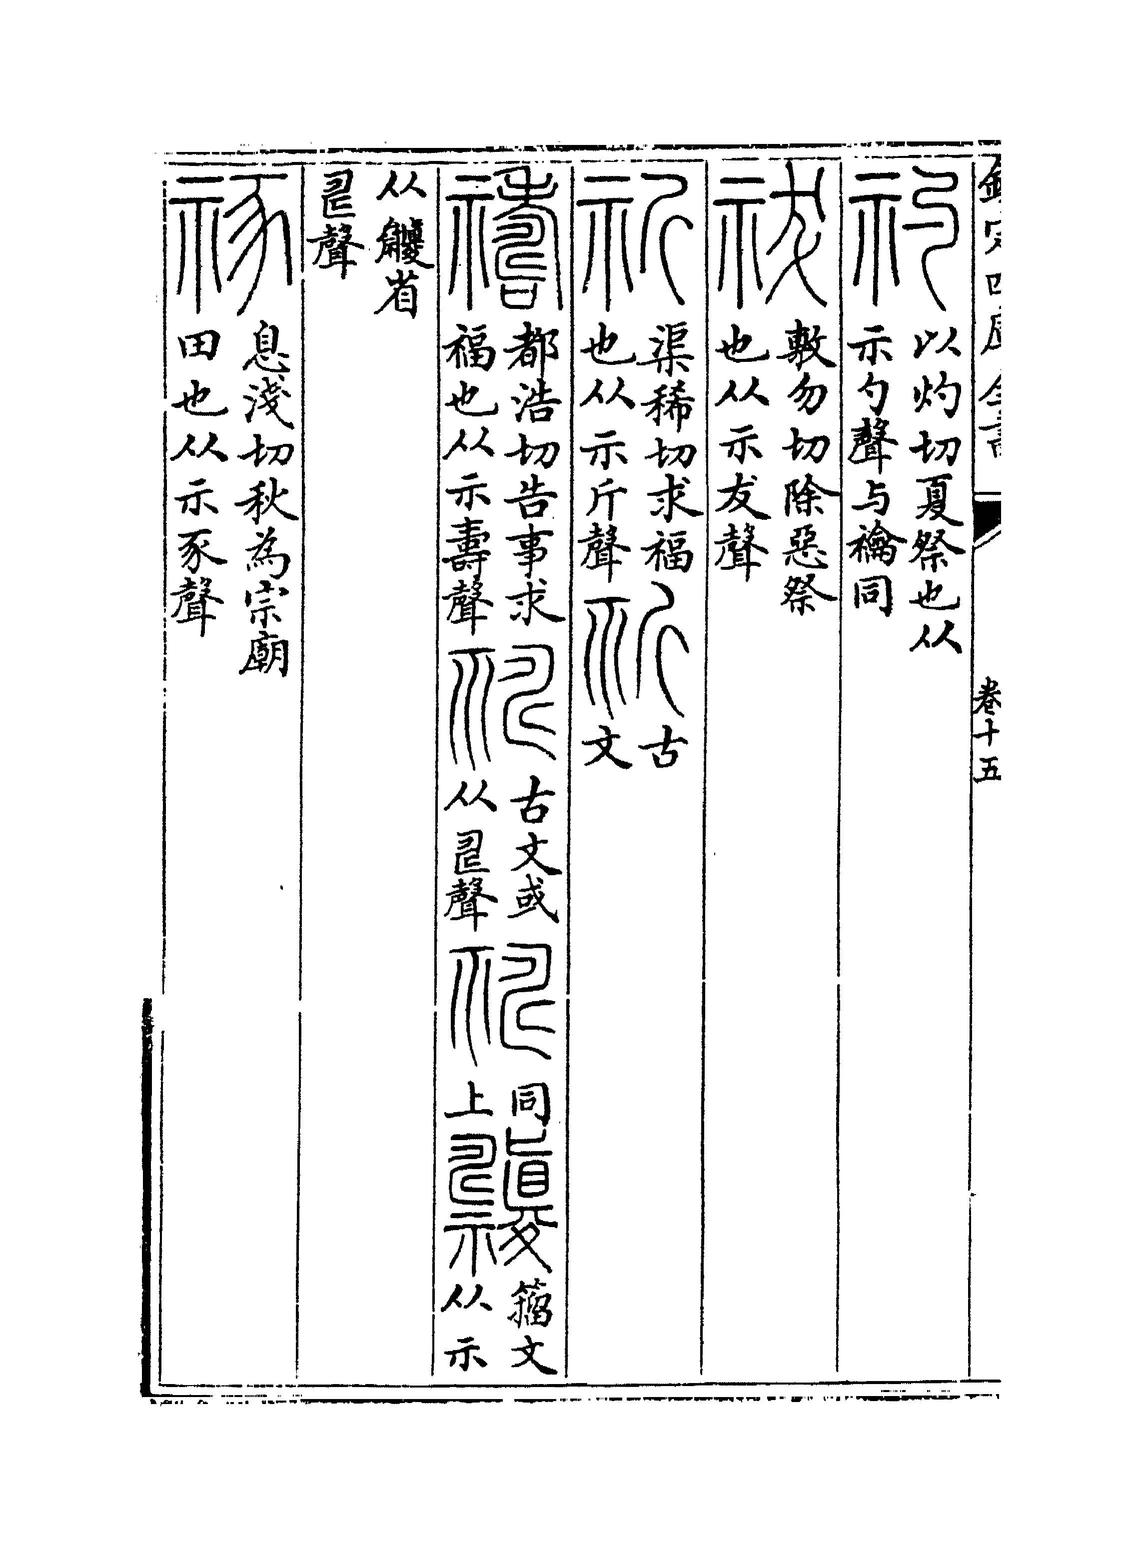 欽定四庫全書
卷十五
礿
以灼切夏祭也从
示勺聲与禴同
祓
敷勿切除惡祭
也从示犮聲
祈
渠稀切求福
也从示斤聲
古
文
禱
都浩切告事求
福也从示壽聲
古文或
从𠃬聲
同
上
籀文
从示
从省
聲
息淺切秋為宗廟
田也从示豕聲